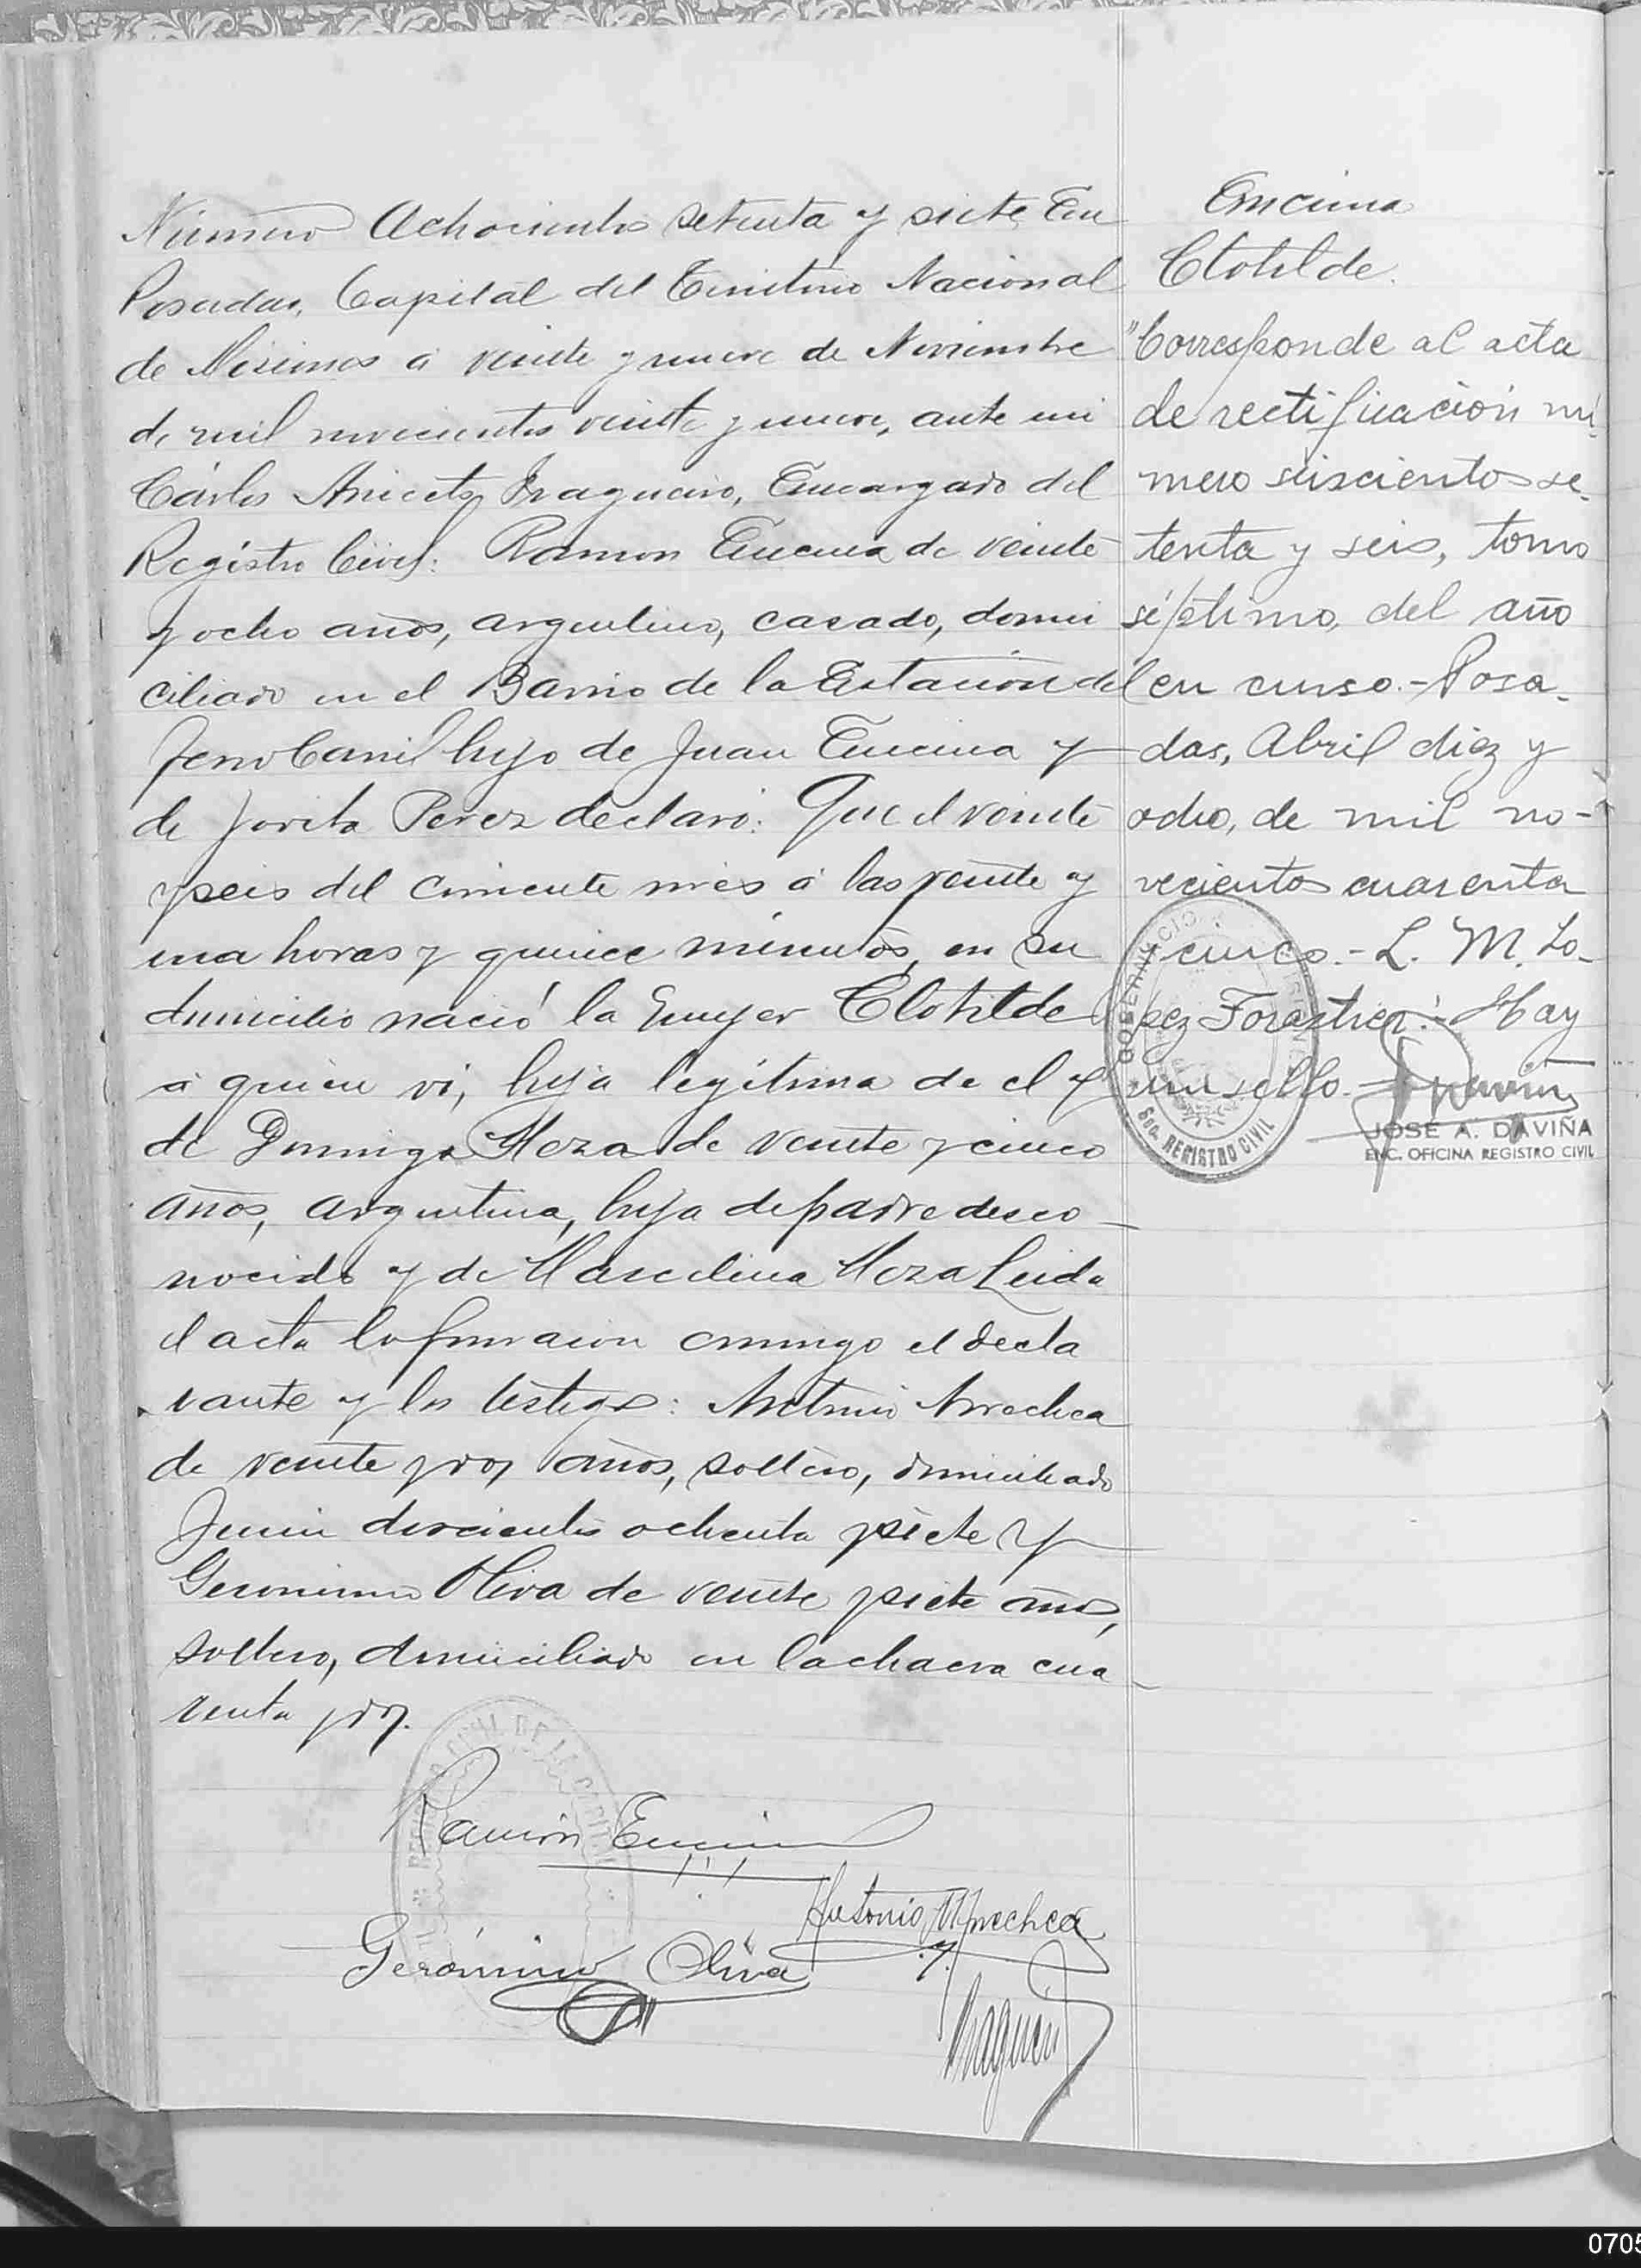 Número Ochocientos setenta y siete En
Posadas, Capital del Territorio Nacional
de Misiones á veinte y nueve de Noviembre
de mil novecientos veinte y nueve, ante mi
Cárlos Aniceto Fragueiro, Encargado del
Registro Civil: Ramon Encina de veinte
y ocho años, argentino, casado, domi
ciliado en el Barrio de la Estación del
Ferro Carril hijo de Juan Encina y
de Perez declaró: Que el veinte
y seis del corriente mes á las veinte y
una horas y quince minutos, en su
domicilio nació la mujer Clotilde
á quien vi, hija legítima de el y
de Dominga Meza de veinte y cinco
años, argentina, hija de padre desco
nocido y de Marcelina Meza Leida
el acta la firmaron conmigo el decla
rante y los testigos: Antonio Arrechea
de veinte y dos años, soltero, domiciliado
Junin doscientos ochenta y siete y
Geronimo Oliva de veinte y siete años,
soltero, domiciliado en la chacra cua
renta y dos.
Ramón Encina
Antonio Arrechea
Gerónimo Oliva
Encina
Clotilde.
"Corresponde al acta
de rectificación nú-
mero seiscientos se-
tenta y seis, tomo
séptimo, del año
en curso.- Posa-
das, Abril diez y
ocho, de mil no-
vecientos cuarenta
y cinco.- L. M. Lo-
pez Forastier.- Hay
un sello.-
GOBERNACIO
Sec. REGISTRO CIVIL
JOSE A. DAVIÑA
ENC. OFICINA REGISTRO CIVIL
0705